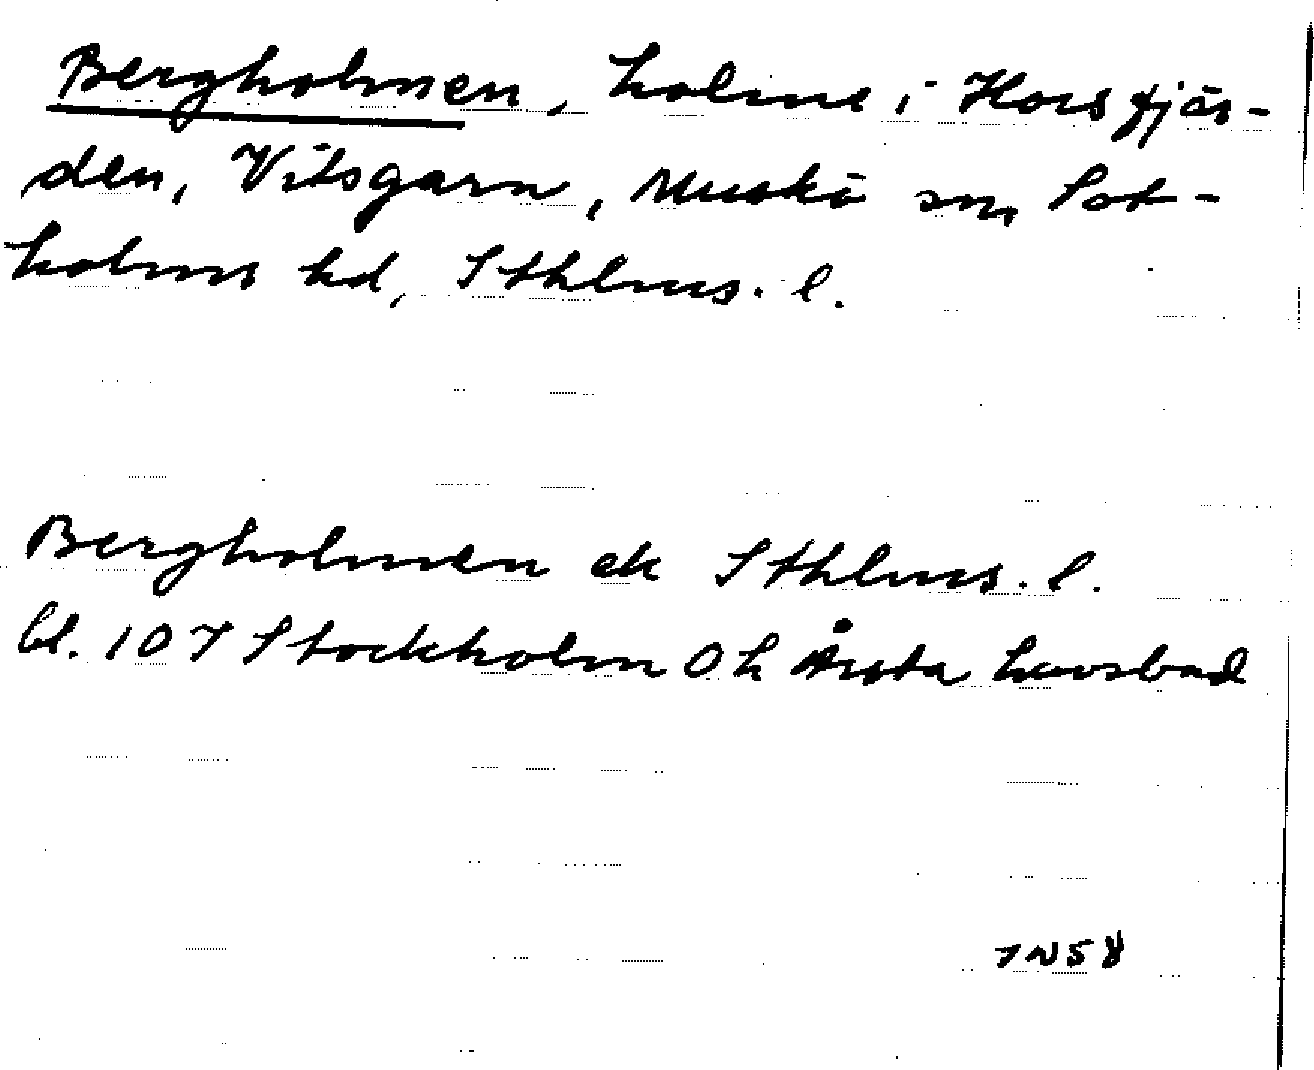 Bergholmen, holme i Horsfjär-
den, Vitsgarn, Muskö sn, Sot-
holms hd, Sthlms. l.
Bergholmen ek Sthlms. l.
bl. 107 Stockholm O h Årsta havsbad
7N58